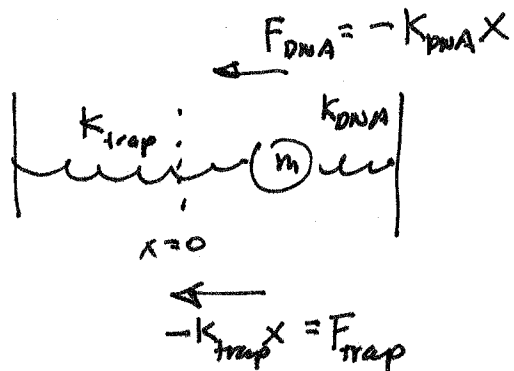 F_DNA = -K_DNA X
K_trap
K_DNA
m
x=0
-K_trap x = F_trap